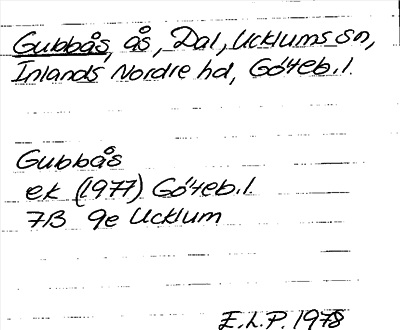 Gubbås, ås, Dal, Ucklums sn,
Inlands Nordre hd, Göteb.l.
Gubbås
ek (1977) Göteb.l.
7B 9e Ucklum
E.L.P. 1978